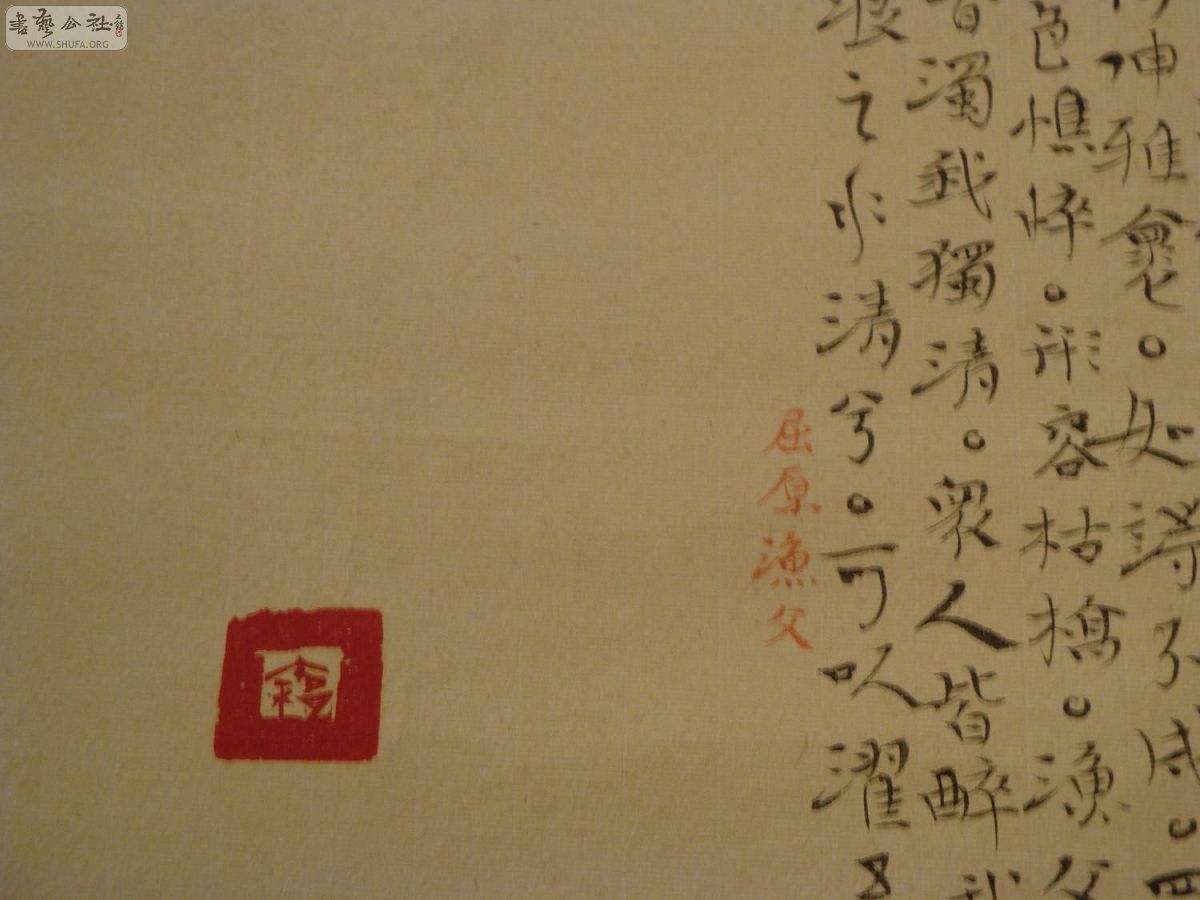 坤雅禽。处諄不咸。
色憔悴。形容枯槁。漁父
濁我獨清。衆人皆醉我
浪之水清兮。可以濯吾
屈原漁父
書藝公社
WWW.SHUFA.ORG